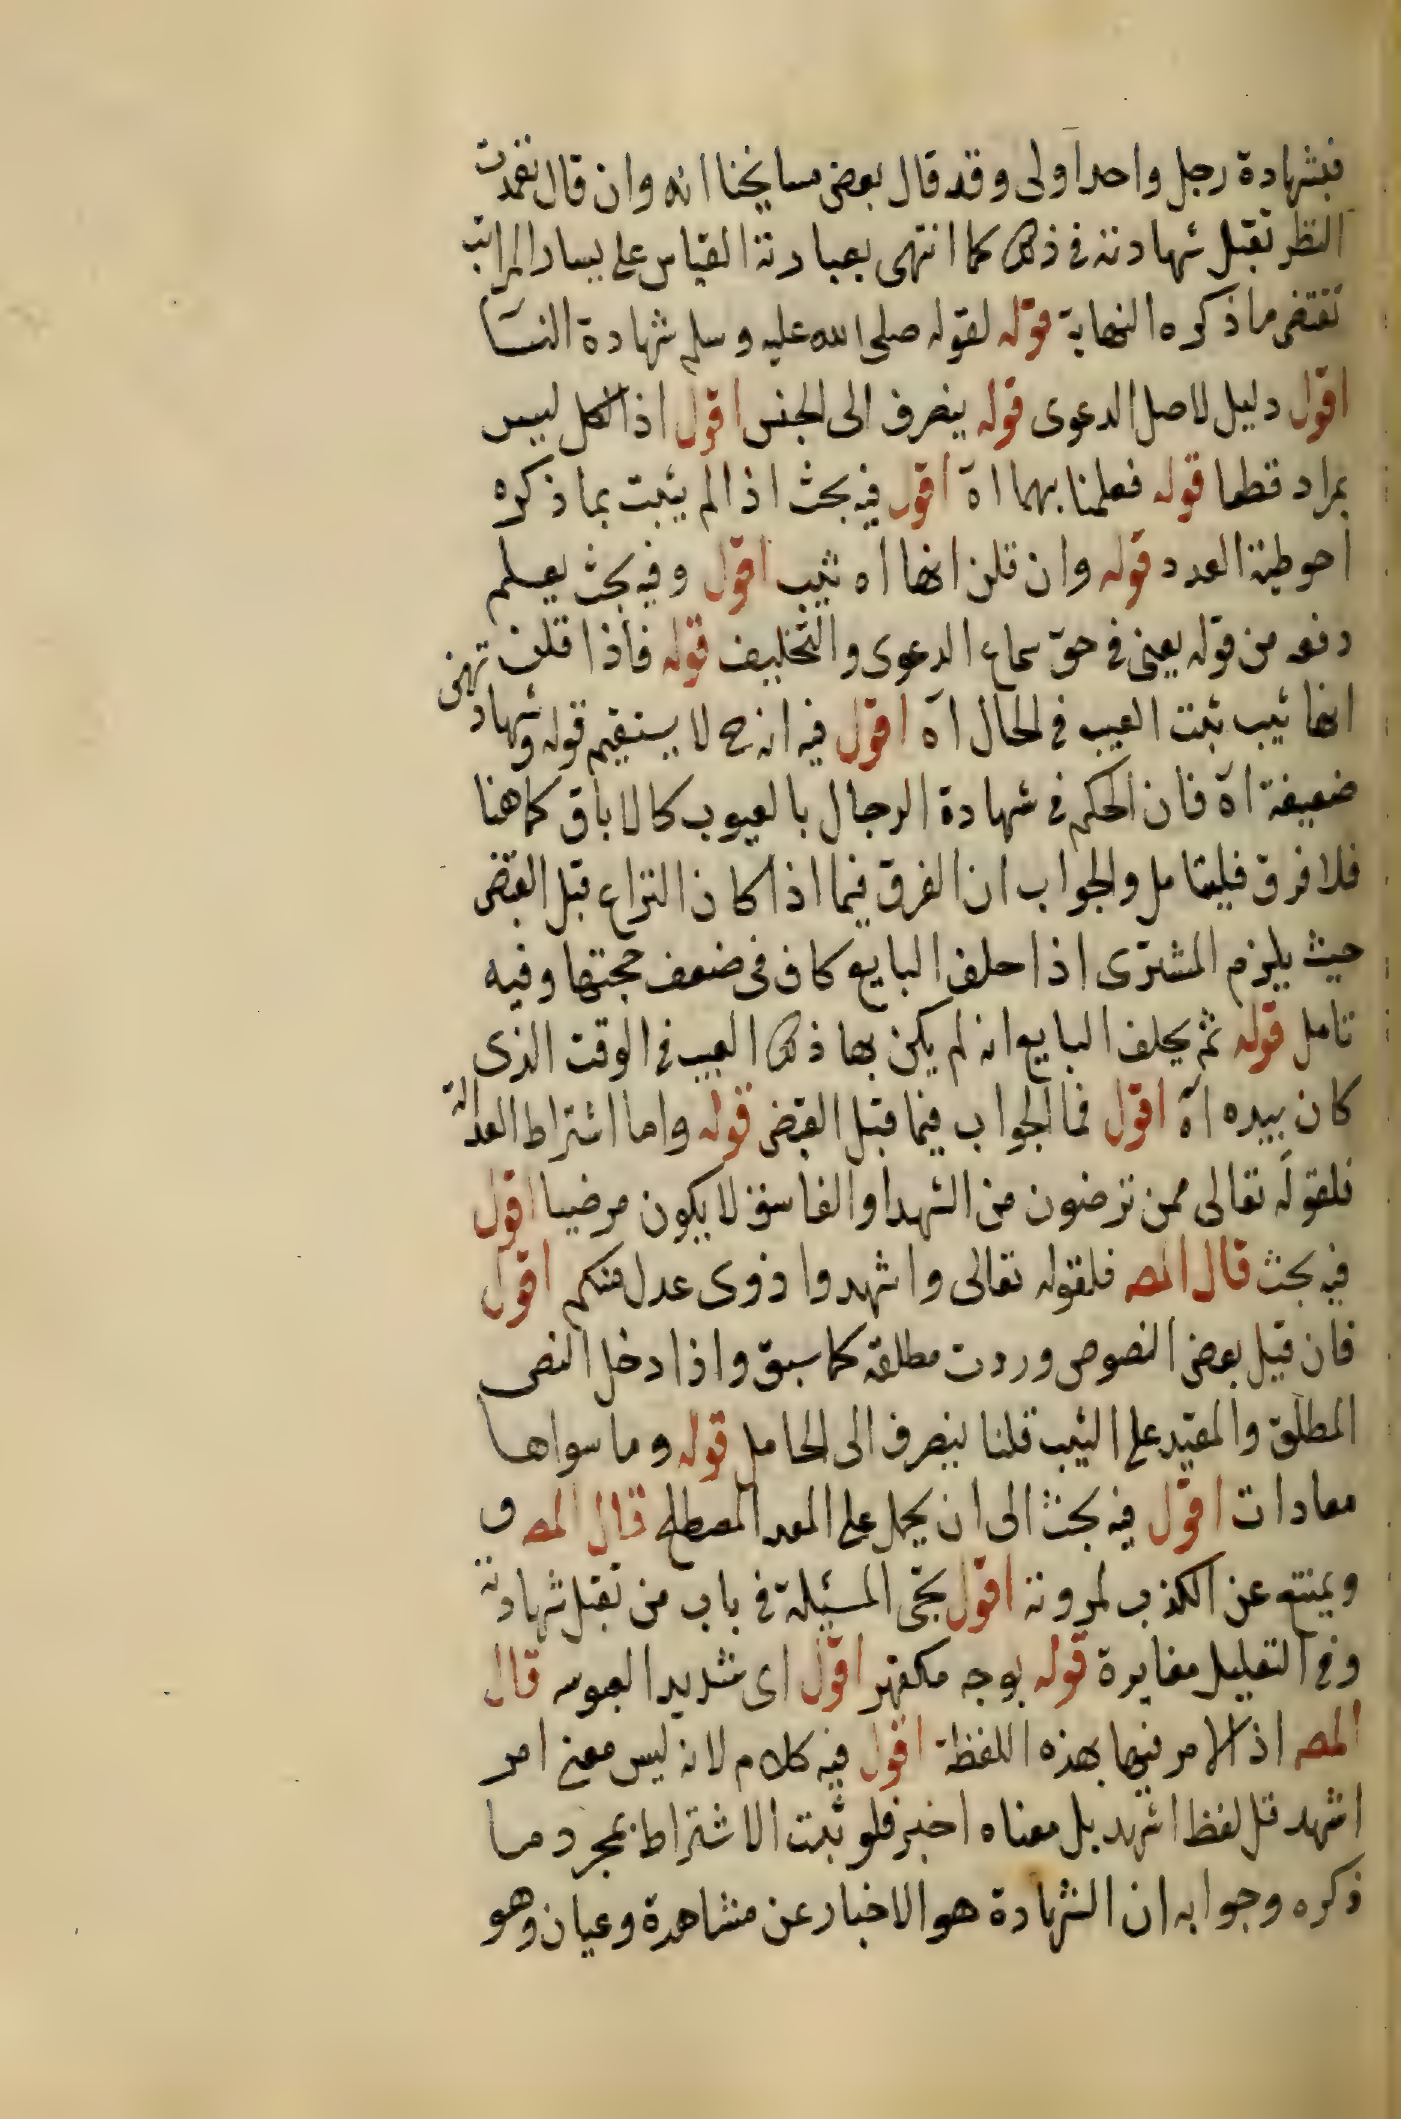 فبشهادة رجل واحد اولى وقد قال بعض مسايخنا انه وان قال تعمدت
النظر تقبل شهادته في ذلك كما انتهى بعبارته القياس على يسار المراتب
تقتضى ما ذكره النهاية قوله لقوله صلى الله عليه وسلم شهادة النسا
اقول دليل لاصل الدعوى قوله ينصرف الى الجنس اقول اذ الكل ليس
بمراد قطعا قوله فعلمنا بهما اه اقول فيه بحث اذ لم يثبت بما ذكره
احوطية العدد قوله وان قلن انها اه ثيب اقول وفيه بحث يعلم
دفعه من قوله يعنى في حق سماع الدعوى والتحليف قوله فاذا قلن
انها ثيب ثبت العيب في الحال اه اقول فيه انه ح لا يستقيم قوله وشهادتهن
ضعيفة اه فان الحكم في شهادة الرجال بالعيوب كالاباق كما هنا
فلا فرق فليتامل والجواب ان الفرق فيما اذا كان النزاع قبل القبض
حيث يلزم المشترى اذا حلف البايع كاف فى ضعف حجتها وفيه
تامل قوله ثم يحلف البايع انه لم يكن بها ذلك العيب في الوقت الذى
كان بيده اه اقول فما الجواب فيما قبل القبض قوله واما اشتراط العدالة
فلقوله تعالى ممن ترضون من الشهدا والفاسق لا يكون مرضيا اقول
فيه بحث قال المص فلقوله تعالى واشهدوا ذوى عدل منكم اقول
فان قيل بعض النصوص وردت مطلقة كما سبق واذا دخل النص
المطلق والمقيد على السبب قلنا ينصرف الى الحامل قوله وما سواها
معادات اقول فيه بحث الى ان يحمل على المعد المصطلح قال المص و
ويمتنع عن الكذب لمروته اقول تجى المسئلة في باب من تقبل شهادته
وفي التعليل مغايرة قوله بوجه مكفهر اقول اى شديد العبوسه قال
المص اذ الامر فيها بهذه اللفظة اقول فيه كلام لانه ليس معنى امر
اشهد قل لفظ اشهد بل معناه اخبر فلو ثبت الاشتراط بمجرد مسا
ذكره وجوابه ان الشهادة هو الاخبار عن مشاهدة وعيان وهو